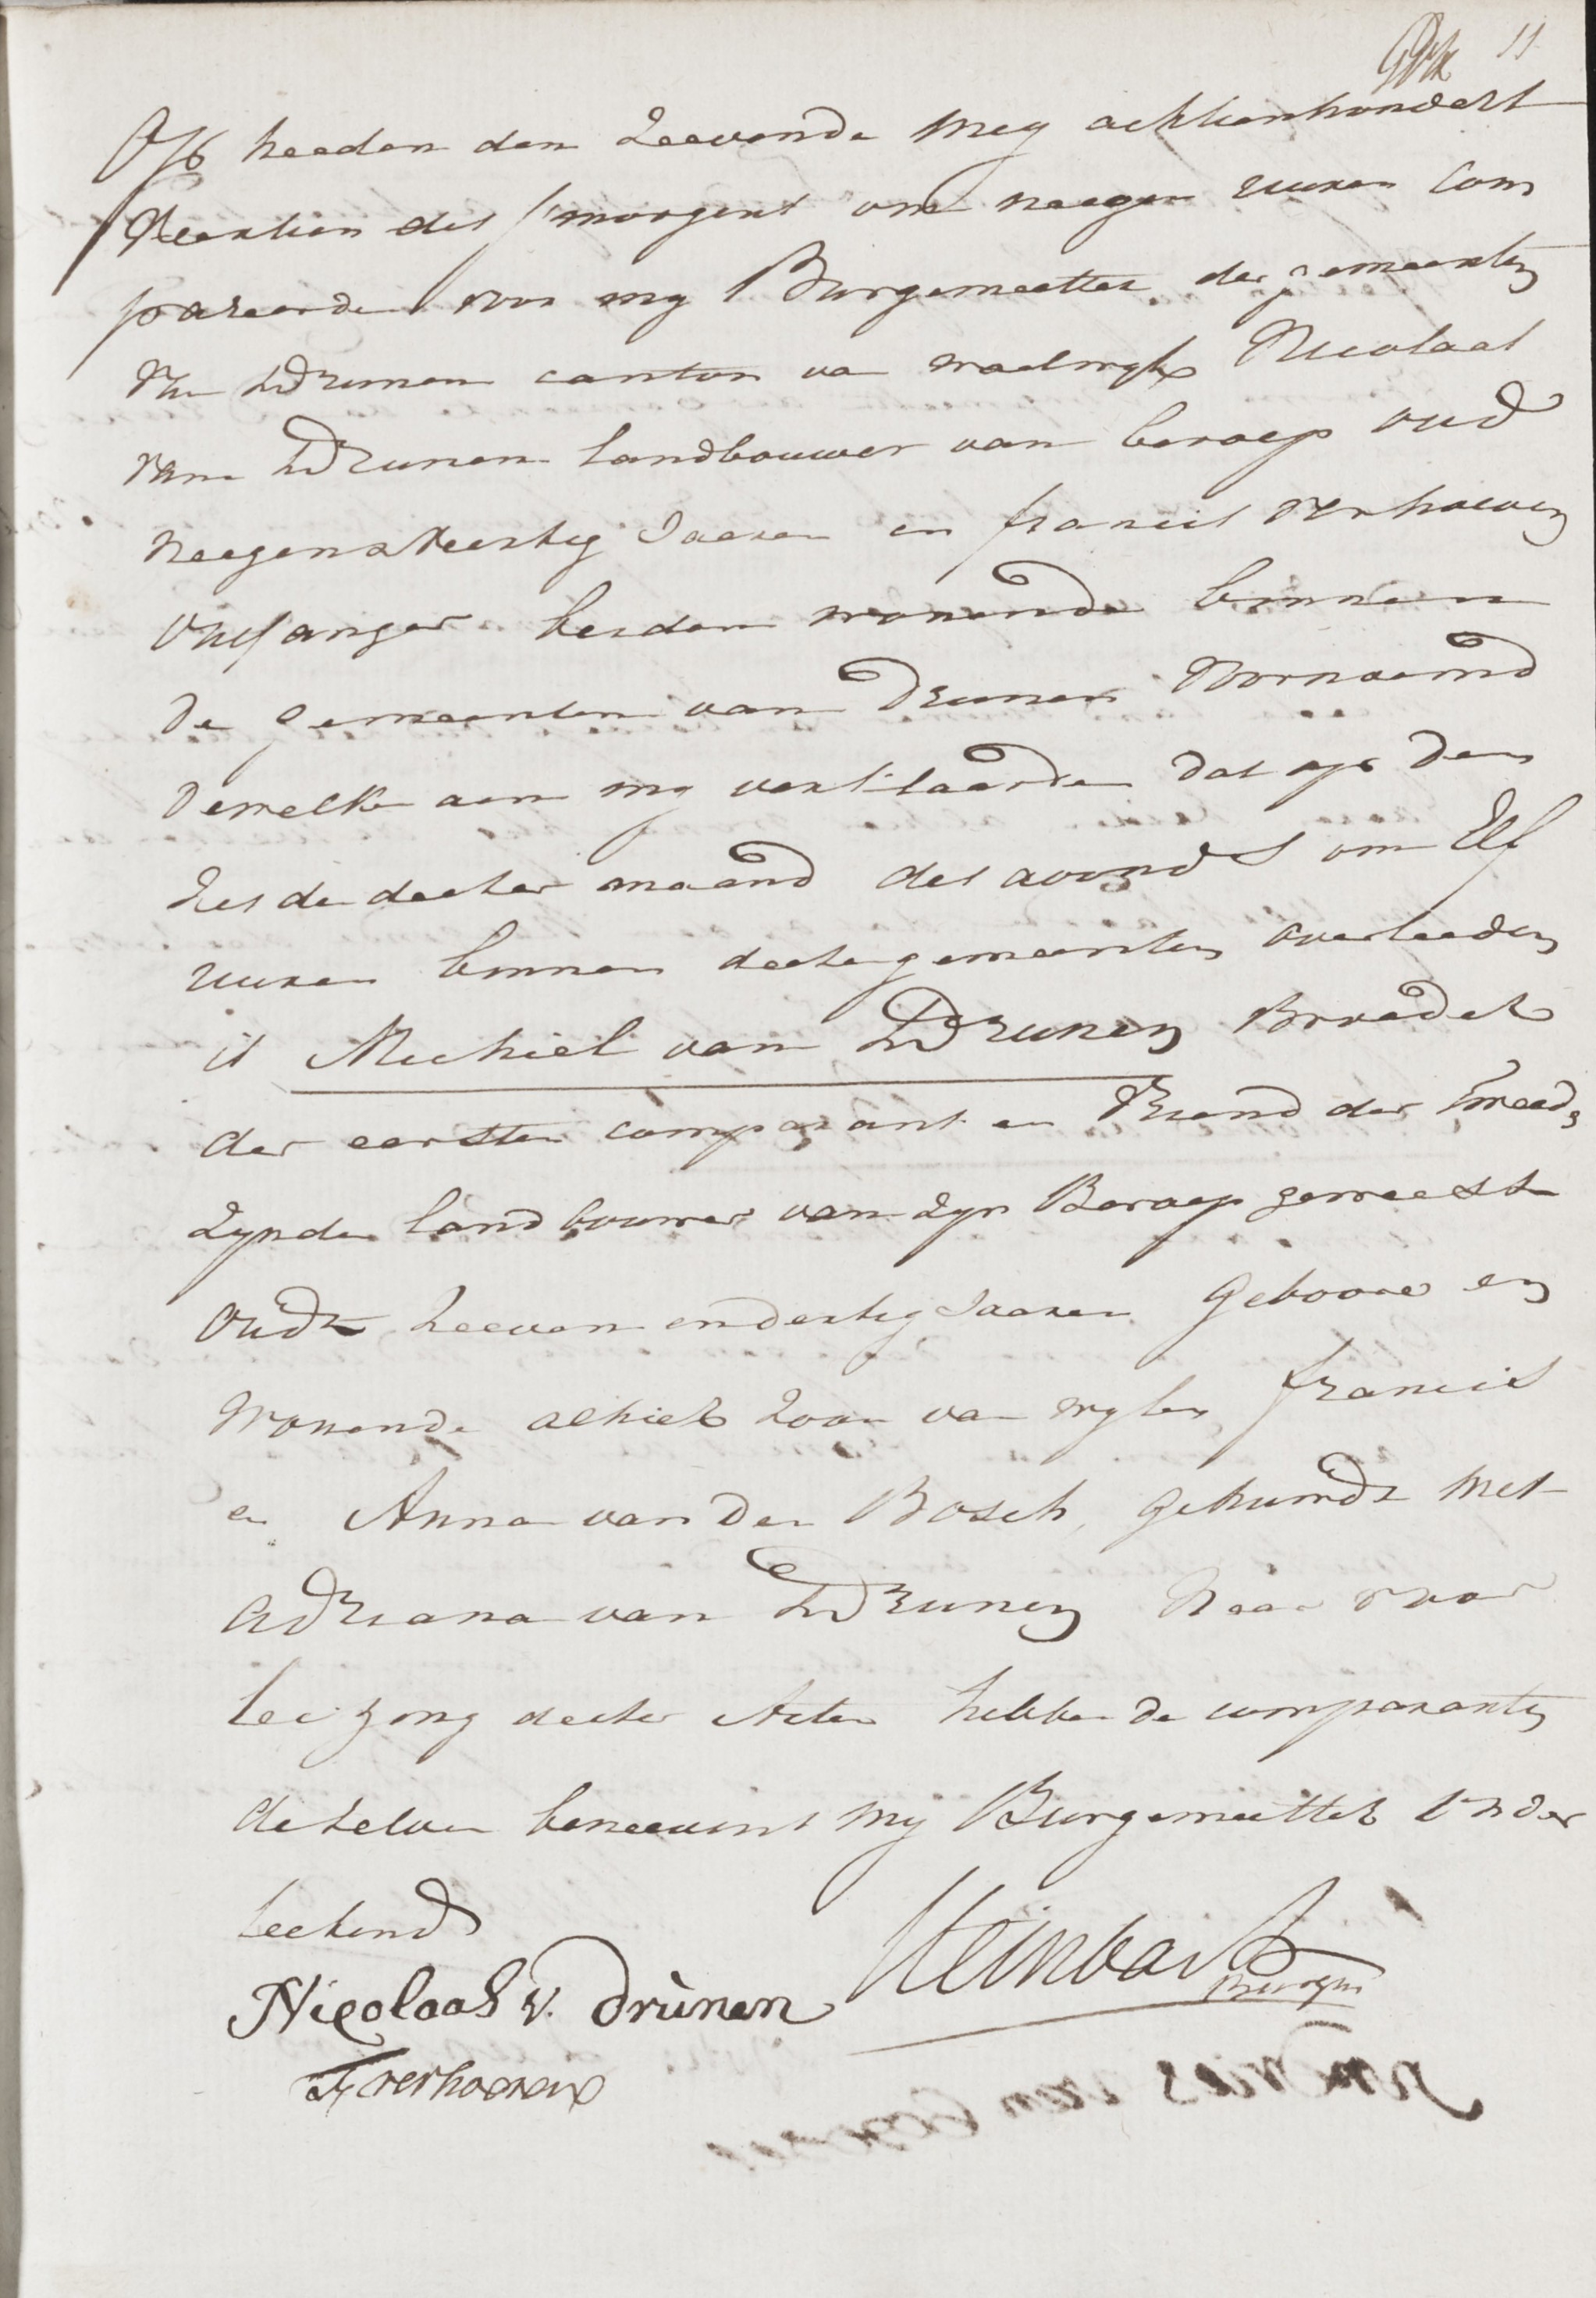 11
Op heeden den Zeevende Mey achtienhondert
Veertien des s'morgens om neegen uuren Com
pareerde voor my Burgemeester der gemeenten
van Drunen canton va waalwyk Nicolaas
van Drunen landbouwer van beroep oud
neegen&veertig Jaaren en francis verhoeven
ontfanger beiden wonende binnen
de gemeenten van Drunen voornoemd
dewelke aen my verklaarden dat op den
Zesde deeser maand des avonds om Elf
uuren binnen deese gemeenten overleeden
is Mechiel van Drunen Broeder
der eersten comparant en Vriend der tweede
zynde landbouwer van zyn Beroep geweest
Oudt Zeeven en dertig Jaaren Geboore en
Wonende alhier Zoon van wylen francis
en Anna van den Bosch, gehuwdt met
Adriana van Drunen Naar voor
leezong deeser Acten hebben de comparanten
deselven beneevens my Burgemeester onder
teekend
Nicolaas v. Drunen Steinbart
Burgm
F verhoeven